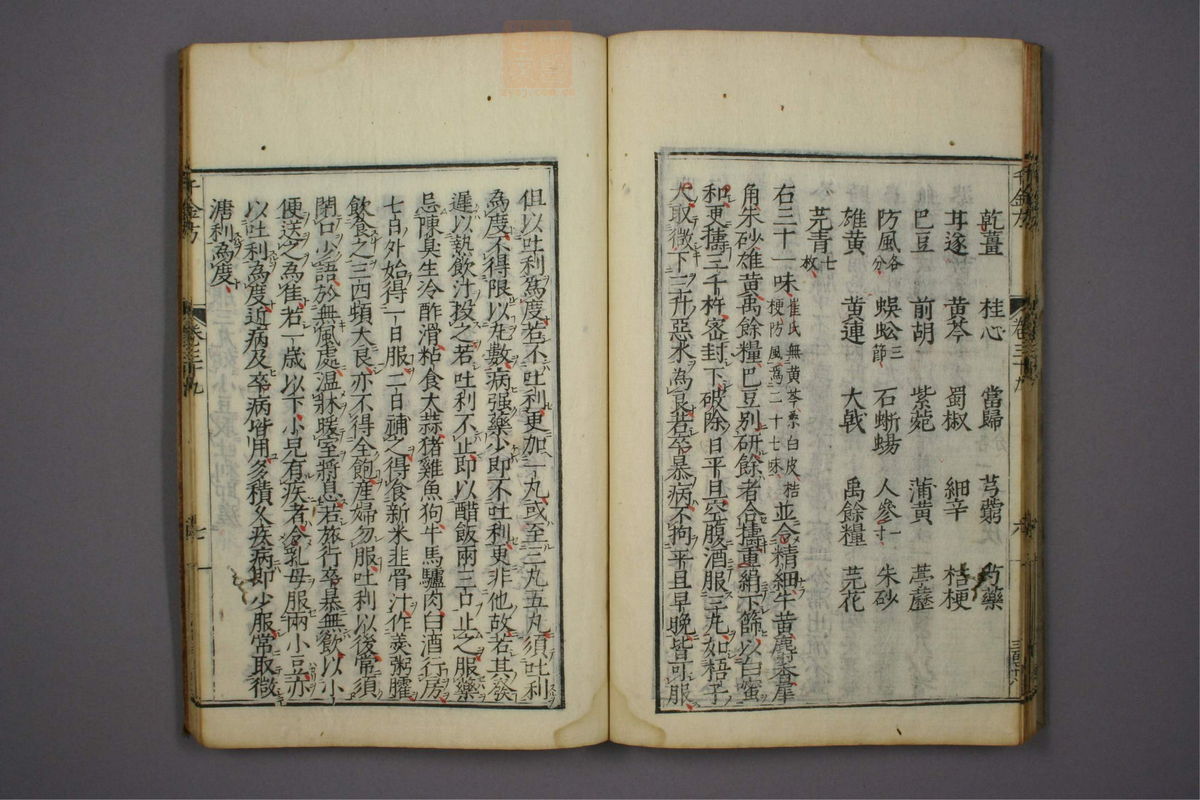 乾薑 桂心 當歸 芎藭 芍藥
耳遂 黃芩 蜀椒 細辛 桔梗
巴豆 前胡 紫菀 蒲黃 葶藶
防風各分 蜈蚣三節 石蜥蜴 人參一寸 朱砂
雄黃 黃連 大戟 禹餘糧 芫花
芫青七枚
右三十一味崔氏無黃芩桑白皮桔梗防風爲二十七味並令精細牛黃麝香犀
角朱砂雄黃禹餘糧巴豆別研餘者合擣重絹下篩以白蜜
和更擣三千杵密封下破除日平旦空腹酒服三丸如梧子
大取微下三升惡水為良若卒暴病不拘平旦早晚皆可服
但以吐利為度若不吐利更加一丸或至三丸五丸須吐利
為度不得限以丸數病强藥少即不吐利更非他故若其發
遲以熱飲汁投之若吐利不止即以醋飯兩三口止之服藥
忌陳臭生冷酢滑粘食大蒜猪雞魚狗牛馬驢肉白酒行房
七日外始得一日服二日補之得食新米韭骨汁作羹粥臛
飲食之三四頓大良亦不得全飽產婦勿服吐利以後常須
閉口少語於無風處温牀暖室將息若旅行卒暴無飲以小
便送之為佳若一歲以下小兒有疾者令乳母服兩小豆亦
以吐利為度近病及卒病皆用多積久疾病即少服常取微
溏利為度
千金方
卷三十九
六
千金方
卷三十九
七